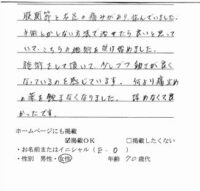 股関節と右足の痛みがあり悩んでいました。
手術しかしない方法で治せたら良いと思って
いて、こちらの施術を受け始めました。
施術をして頂いて、少しづつ 動きが良く
なっているのを感じています。何より痛み止め
の薬を飲まなくなりました。諦めなくて良
かったです。
ホームページにも掲載
☑掲載OK □掲載したくない
・お名前またはイニシャル（E.O）
・性別 男性・女性 年齢 70歳代